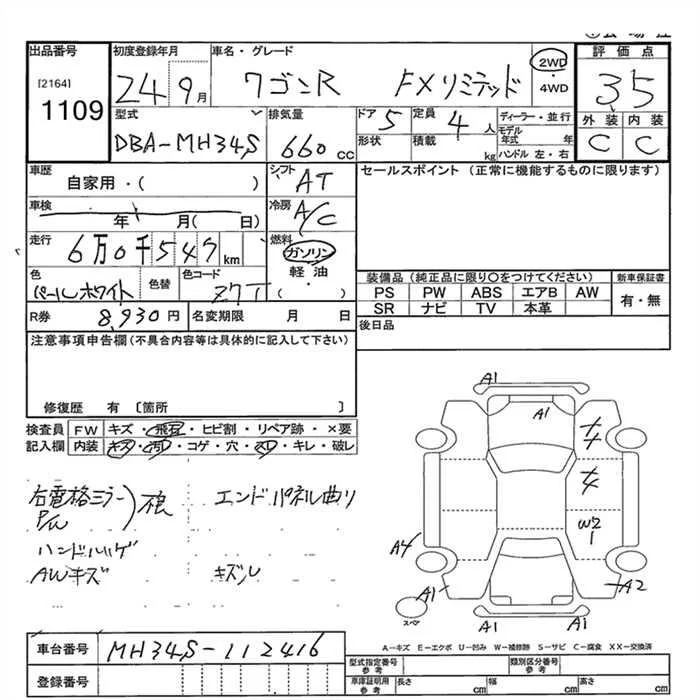 出品番号 初度登録年月 車名・グレード 評価点
[2164] 1109 24 9月 ワゴンR FXリミテッド 2WD・4WD 35
型式 排気量 ドア 5 定員 4人 ディーラー・並行 外装 内装
DBA-MH34S 660cc 形状 積載 kg モデル年式 年 C C
ハンドル 左・右
車歴 自家用・( ) シフト AT セールスポイント (正常に機能するものに限ります)
車検 年 月( 日) 冷房 A/C
走行 6万0千547km 燃料 ガソリン
色 パールホワイト 色替 色コード Z7T 軽油・( ) 装備品(純正品に限り○をつけてください) 新車保証書
PS PW ABS エアB AW 有・無
R券 8,930円 名変期限 月 日 SR ナビ TV 本革
注意事項申告欄(不具合内容等は具体的に記入して下さい) 後日品
修復歴 有 〔箇所 〕
検査員記入欄 FW キズ・飛石・ヒビ割・リペア跡・×要
内装 キズ・汚れ・コゲ・穴・スレ・キレ・破レ
右電格ミラー エンドパネル曲り
P/W 不良
ハンドルハゲ
AWキズ キズル
A1
A1
W2
1
A4
A1 A2
スペア
A1 A1
A-キズ E-エクボ U-凹み W-補修跡 S-サビ C-腐食 XX-交換済
車台番号 MH34S-112416
登録番号
型式指定番号 参考 類別区分番号 参考
車庫証明用 参考 長さ cm 幅 cm 高さ cm